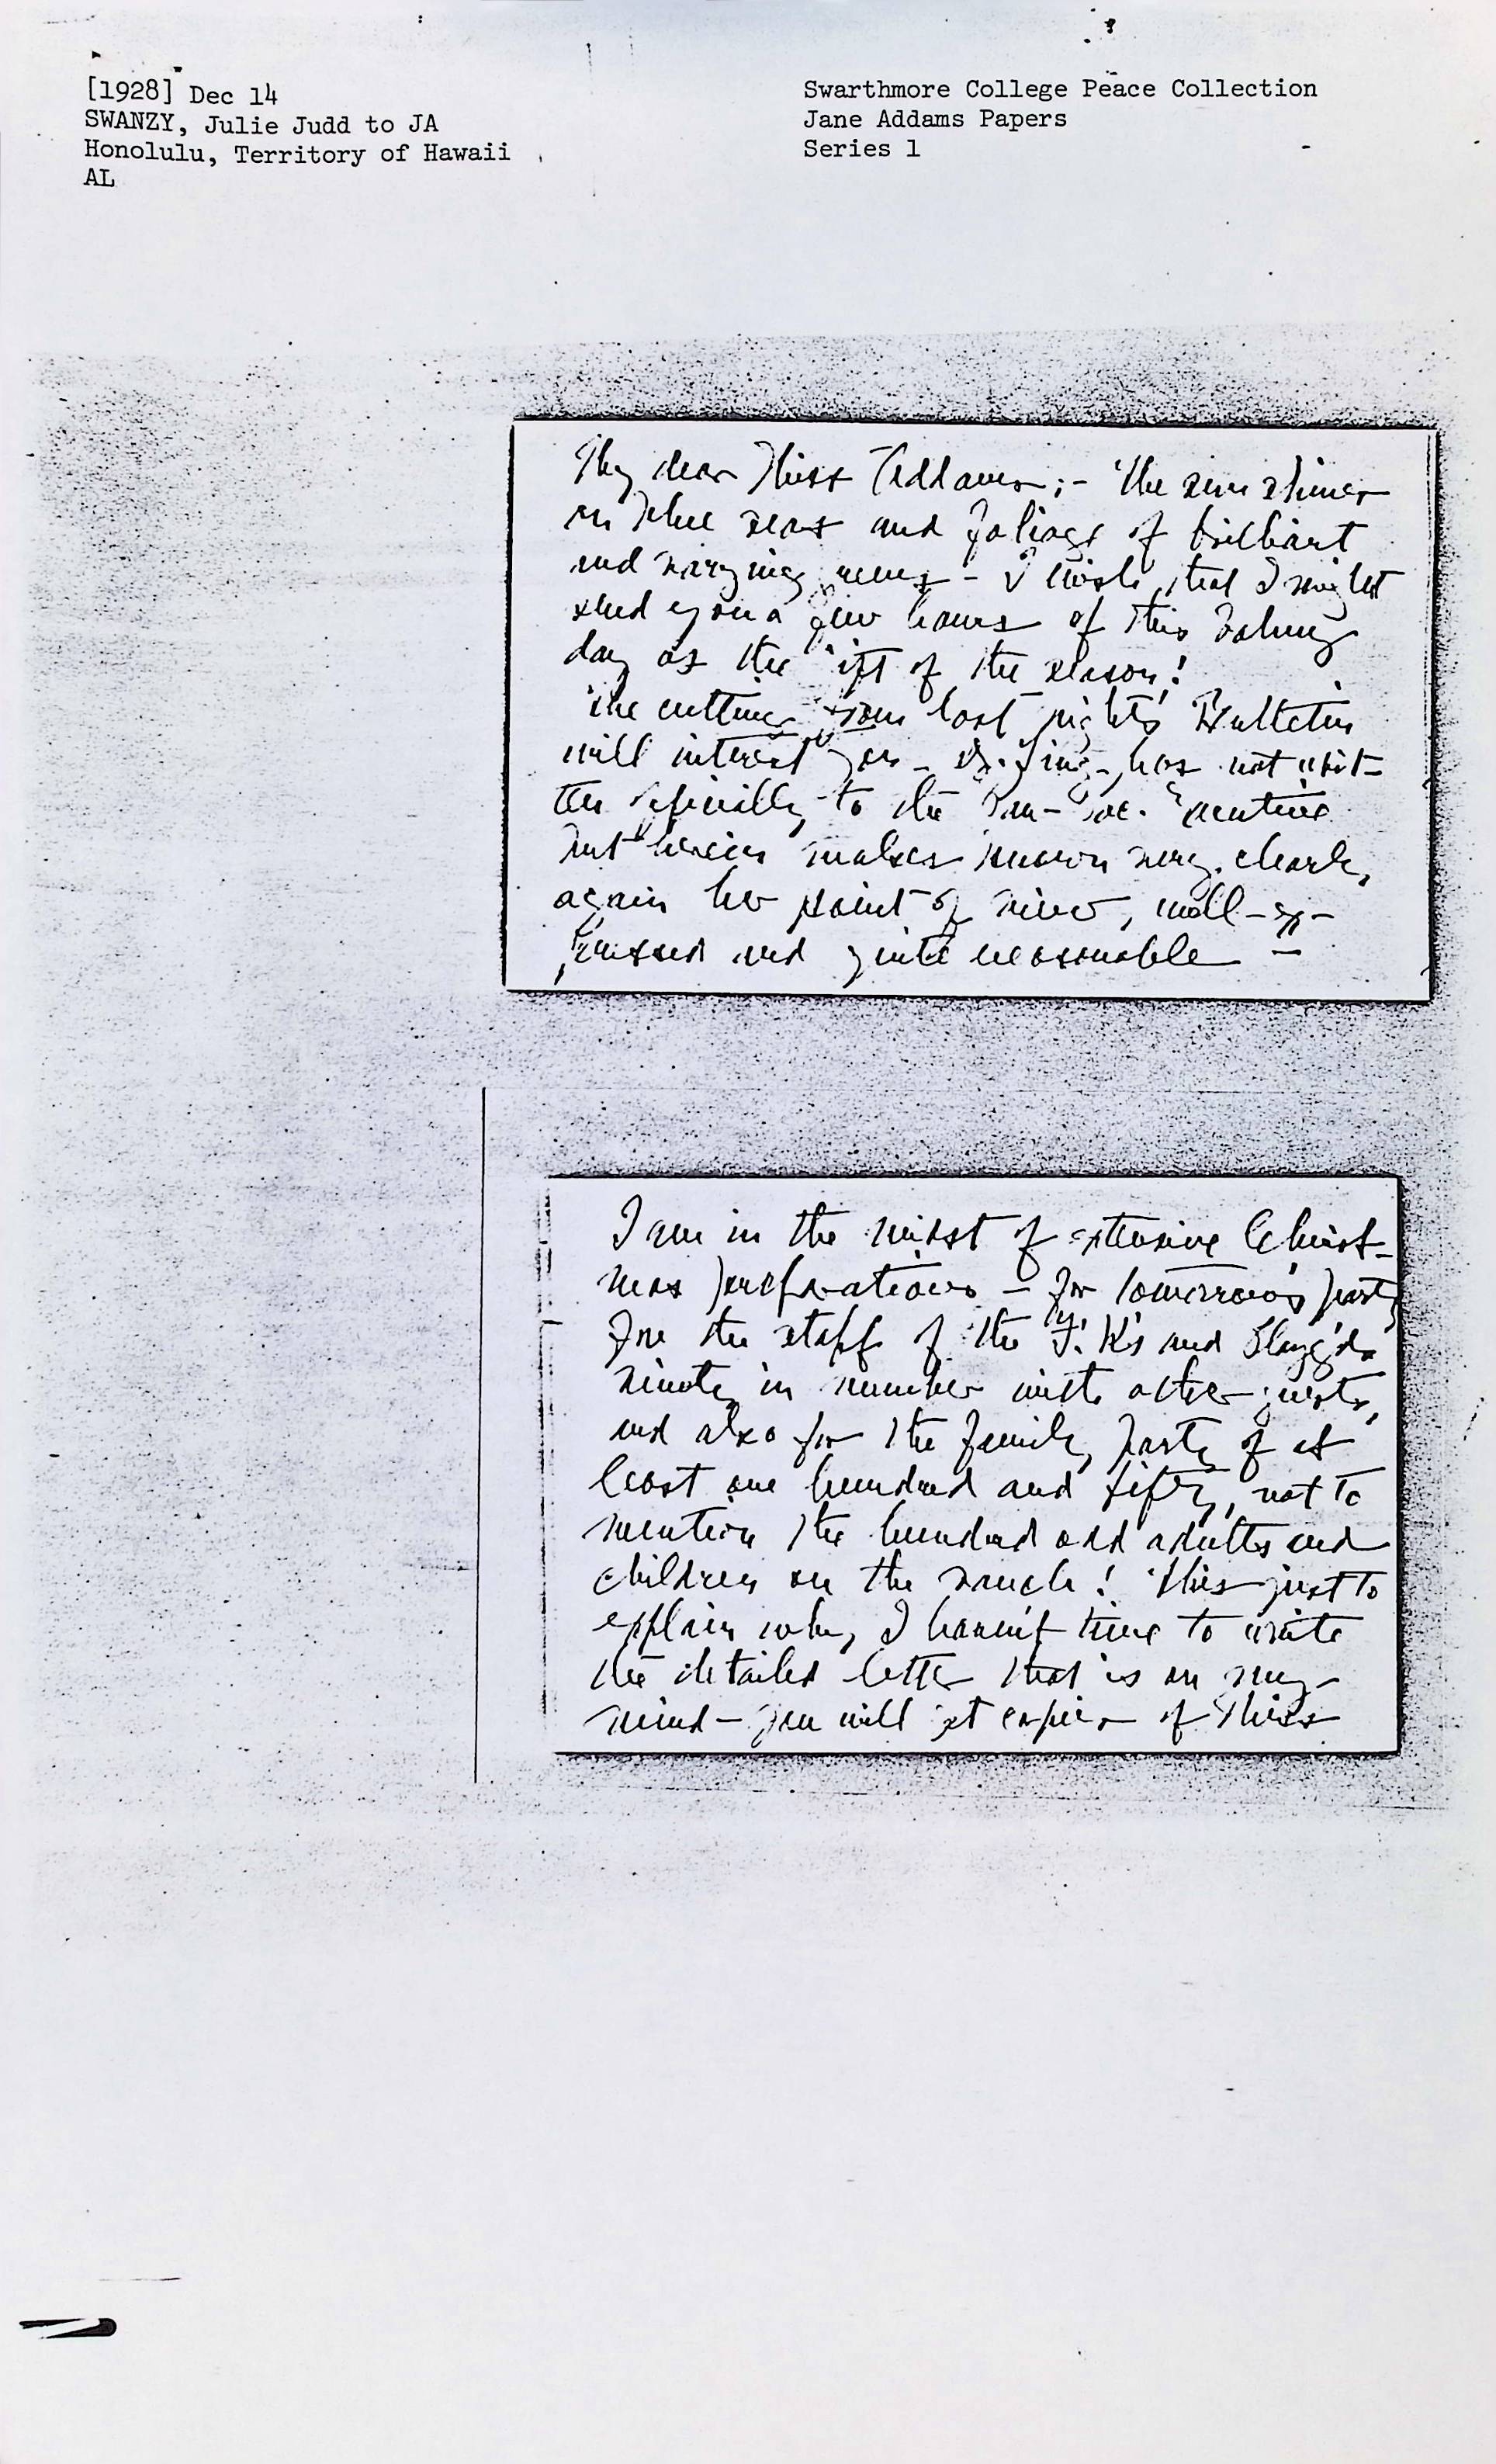 [1928] Dec 14
SWANZY, Julie Judd to JA
Honolulu, Territory of Hawaii
AL
Swarthmore College Peace Collection
Jane Addams Papers
Series 1
My dear Miss Addams;- The sun shines
on blue seas and foliage of brilliant
and varying - I wish that I might
send you a few hours of this balmy
day as the gift of the season!
The cutting from last night's Bulletin
will interest you - has not writ-
ten to the Pan-Pac.
but herein makes known very clearly
again her point of view, well-ex-
pressed and quite reasonable -
I am in the midst of extensive Christ-
mas preparations - for tomorrow's party
for the staff of the F. K's and
ninety in number with other guests,
and also for the family party of at
least one hundred and fifty, not to
mention the hundred odd adults and
children on the ranch! This just to
explain why I haven't time to write
the detailed letter that is on my
mind - you will get copies of Miss